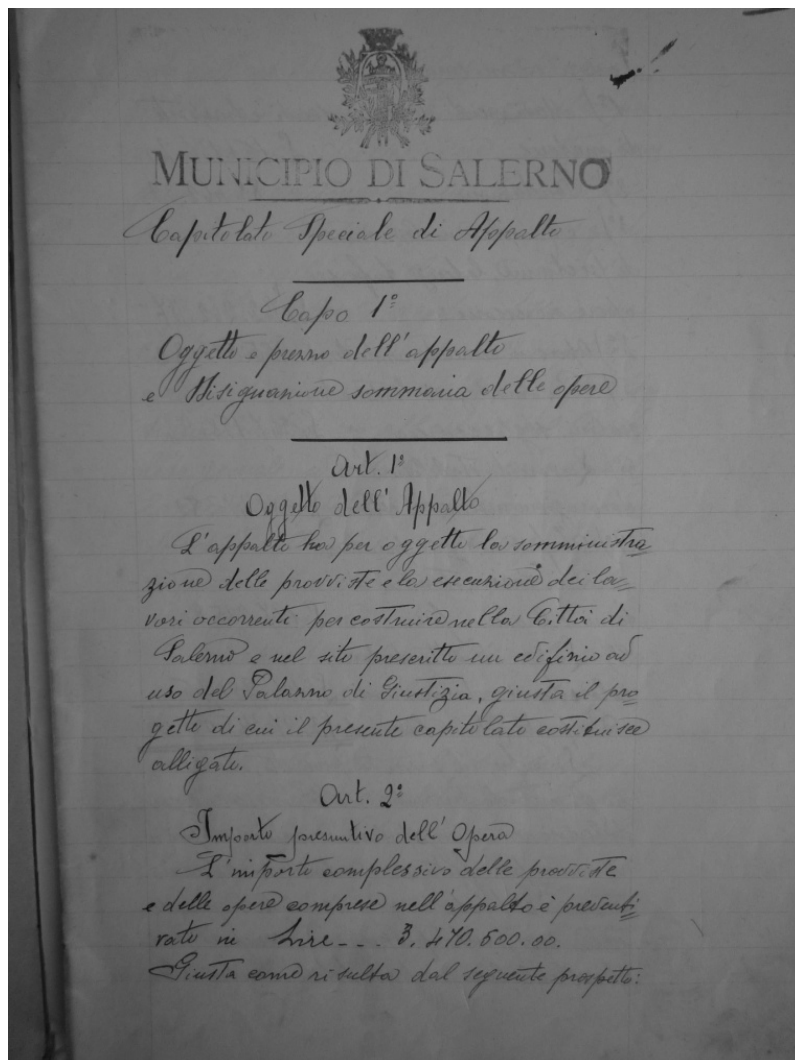 MUNICIPIO DI SALERNO
Capitolato Speciale di Appalto
Capo 1º
Oggetto e prezzo dell'appalto
e Disignazione sommaria delle opere
Art. 1º
Oggetto dell'Appalto
L'appalto ha per oggetto la somministra=
zione delle provviste e la esecuzione dei la=
vori occorrenti per costruire nella Città di
Salerno e nel sito prescritto un edifizio ad
uso del Palazzo di Giustizia, giusta il pro=
getto di cui il presente capitolato costituisce
alligato.
Art. 2º
Importo presuntivo dell'Opera
L'importo complessivo delle provviste
e delle opere comprese nell'appalto è preventi=
vato in Lire --- 3.470.600.00.
Giusta come risulta dal seguente prospetto: